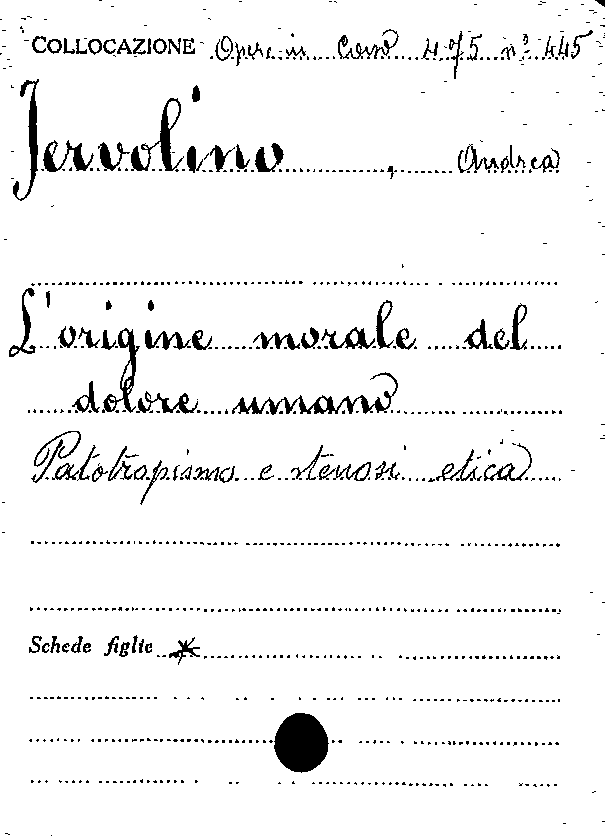 COLLOCAZIONE Opere in Corso 475 nº 445
Jervolino, Andrea
L'origine morale del
dolore umano
Patotropismo e stenosi etica
Schede figlie *